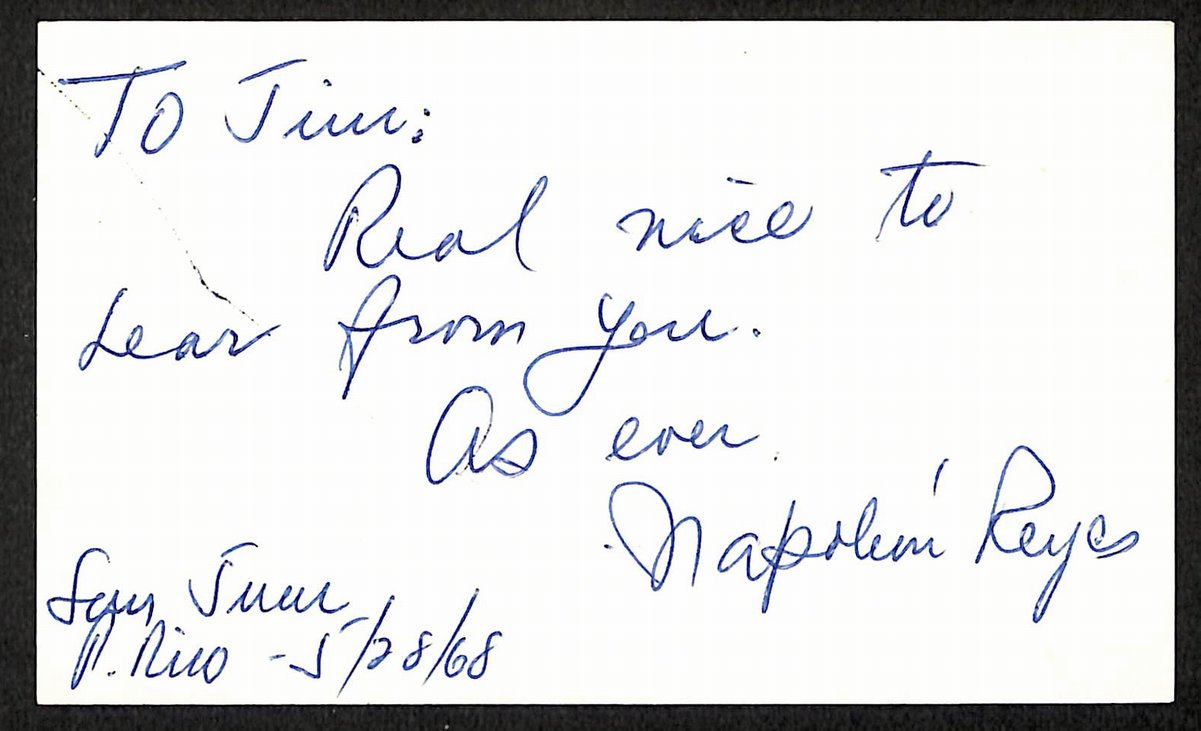 To Jim:
Real nice to
hear from you.
As ever.
Napoleón Reyes
San Juan
P. Rico - 5/28/68